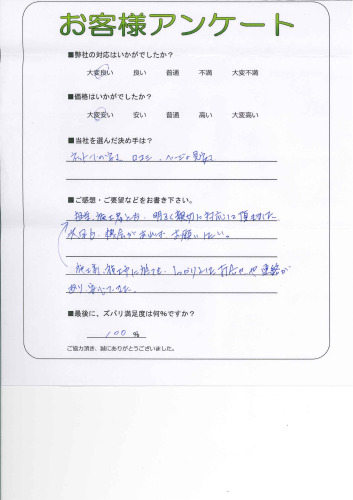 お客様アンケート
■弊社の対応はいかがでしたか？
大変良い 良い 普通 不満 大変不満
■価格はいかがでしたか？
大変安い 安い 普通 高い 大変高い
■当社を選んだ決め手は？
ネット 口コミ、ページを見て
■ご感想・ご要望などをお書き下さい。
明るく親切に対応して頂きました
次回も、機会があれば お願いしたい。
施工前、施工中に於ても、しっかりとした打合せや連絡が
あり、安心でした。
■最後に、ズバリ満足度は何%ですか？
100 %
ご協力頂き、誠にありがとうございました。